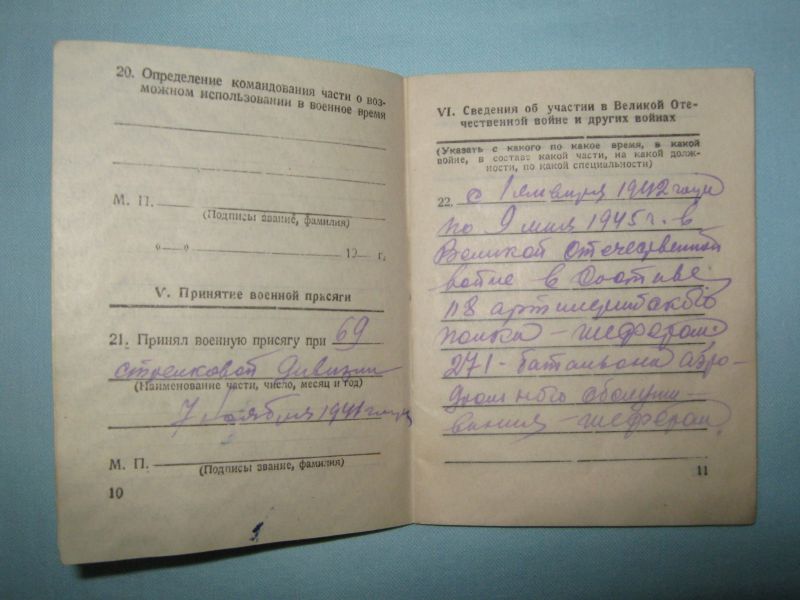 20. Определение командования части о воз-
можном использовании в военное время
М. П.
(Подписы звание, фамилия)
"—" 19 г.
V. Принятие военной присяги
21. Принял военную присягу при 69
стрелковой дивизии
(Наименование части, число, месяц и год)
7 ноября 1941 года
М. П.
(Подписы звание, фамилия)
10
VI. Сведения об участии в Великой Оте-
чественной войне и других войнах
(Указать с какого по какое время, в какой
войне, в составе какой части, на какой долж-
ности, по какой специальности)
22. с 1 января 1942 года
по 9 мая 1945 г. в
Великой отечественной
войне в составе
118
полка - шофером
271 - батальона аэро-
дромного обслужи-
вания - шофером
11